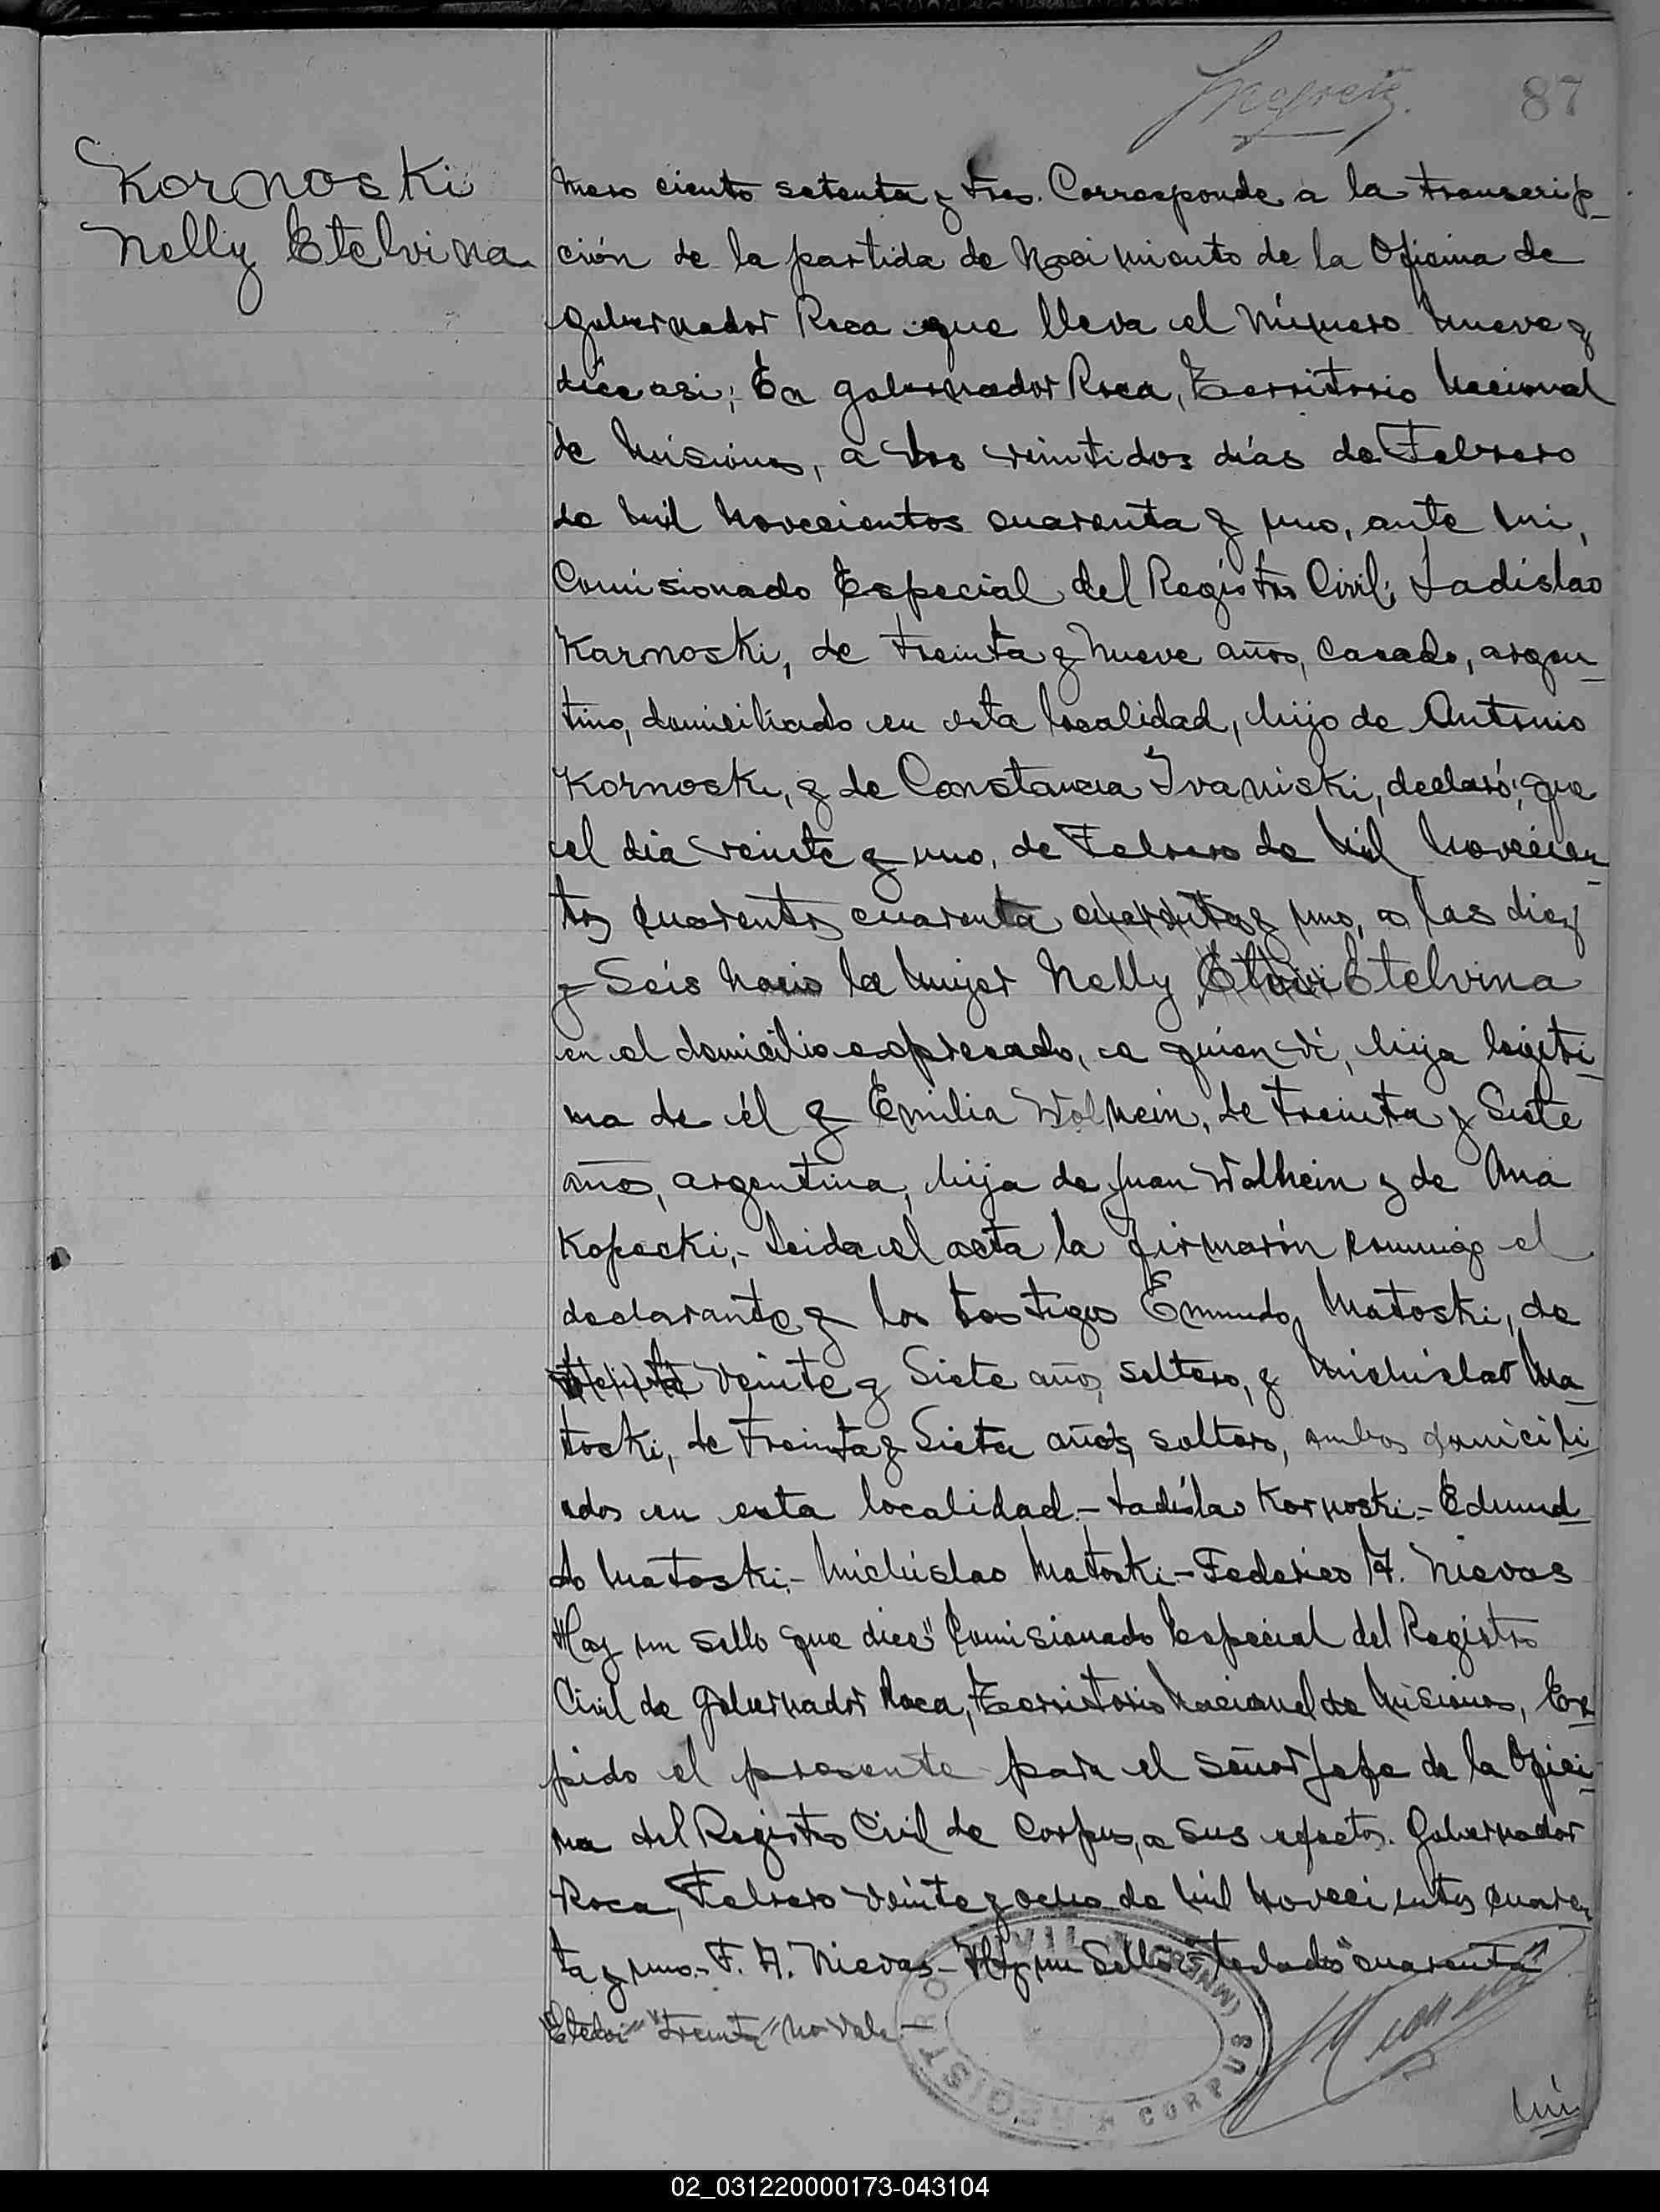 87
Kornoski
Nelly Etelvina
mero ciento setenta y tres. Corresponde a la transcrip-
ción de la partida de Nacimiento de la Oficina de
Gobernador Roca que lleva el número nueve y
dice asi; En Gobernador Roca, Territorio Nacional
de Misiones, a los veintidos días de Febrero
de mil novecientos cuarenta y uno, ante mi,
Comisionado Especial del Registro Civil; Ladislao
Karnoski, de treinta y nueve años, casado, argen-
tino, domiciliado en esta localidad, hijo de Antonio
Kornoski, y de Constancia Ivaniski, declaró; que
el día veinte y uno, de Febrero de mil novecien-
tos cuarenta cuarenta cuarenta y uno, a las diez
y Seis nacio la mujer Nelly Etelvi Etelvina
en el domicilio expresado, a quién vi, hija legíti-
ma de él y Emilia Wolhein, de treinta y Siete
años, argentina, hija de Juan Wolhein y de Ana
Kopecki,- Leida el acta la firmarón conmigo el
declarante y los testigos Emundo Matoski, de
treinta veinte y Siete años, soltero, y Michislao Ma-
toski, de treinta y Siete años, soltero, ambos domicili-
ados en esta localidad.- Ladislao Kornoski.- Edmund-
do Matoski.- Michislao Matoski.- Federico A. Nievas
Hay un sello que dice" Comisionado Especial del Registro
Civil de Gobernador Roca, Territorio Nacional de Misiones, Ex-
pido el presente para el señor Jefe de la Ofici-
na del Registro Civil de Corpus, a sus efectos. Gobernador
Roca, Febrero veinte y ocho de mil novecientos cuaren-
ta y uno.- F. A. Nievas.- Hay un Sello.- testado "cuarenta"
"Etelvi" "treinta" no vale.-
REGISTRO CIVIL CORPUS (MNES)
02_031220000173-043104